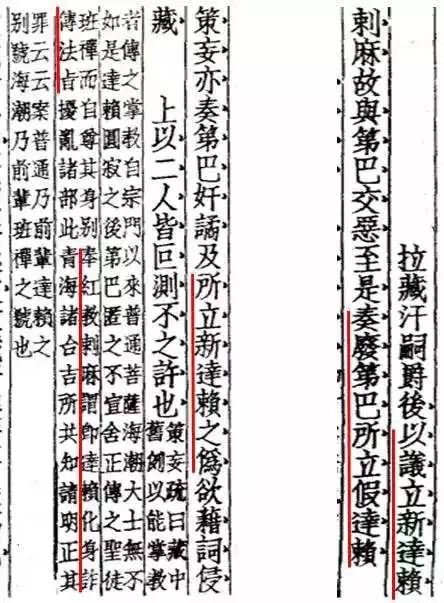 拉藏汗嗣爵後以議立新達賴
剌麻故與第巴交惡至是奏廢第巴所立假達賴
策妄亦奏第巴奸譎及所立新達賴之僞欲藉詞侵
藏 上以二人皆叵測不之許也
策妄疏曰藏中
舊例以能掌教
者傳之掌教自宗門以來普通菩薩海潮大士無不
如是達賴圓寂之後第巴匿之不宣舍正傳之聖徒
班禪而自尊其身别奉紅教剌麻謂即達賴化身詐
傳法旨擾亂諸部此青海諸台吉所共知請明正其
罪云云案普通乃前輩達賴之
别號海潮乃前輩班禪之號也